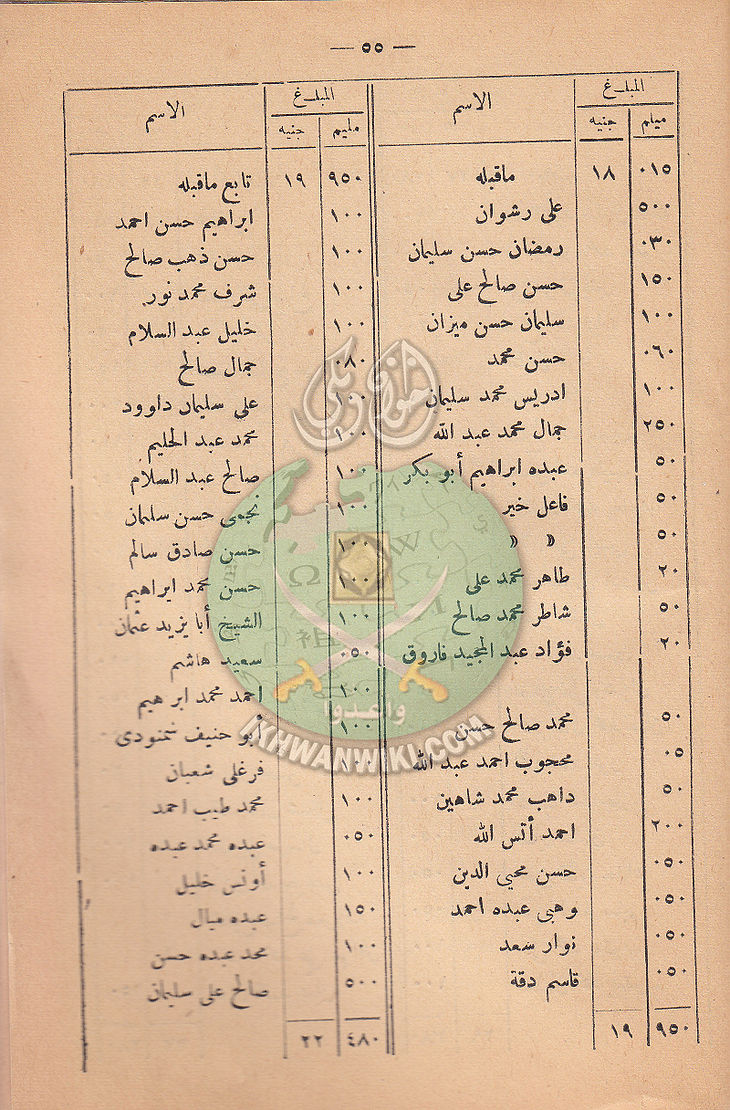 — ٥٥ —
المبلغ الاسم
مليم جنيه
٠١٥ ١٨ ماقبله
٥٠٠ على رشوان
٠٣٠ رمضان حسن سليمان
١٥٠ حسن صالح على
١٠٠ سليمان حسن ميزان
٠٦٠ حسن محمد
١٠٠ ادريس محمد سليمان
٢٥٠ جمال محمد عبد الله
٥٠ عبده ابراهيم أبو بكر
٥٠ فاعل خير
٥٠ » »
٢٠ طاهر محمد على
٥٠ شاطر محمد صالح
٢٠ فؤاد عبد المجيد فاروق
٥٠ محمد صالح حسن
٠٥ محجوب احمد عبد الله
٥٠ داهب محمد شاهين
٢٠٠ احمد أتس الله
٠٥٠ حسن محيي الدين
٠٥٠ وهبى عبده احمد
٠٥٠ نوار سعد
٠٥٠ قاسم دقة
٩٥٠ ١٩
المبلغ الاسم
مليم جنيه
٩٥٠ ١٩ تابع ماقبله
١٠٠ ابراهيم حسن احمد
١٠٠ حسن ذهب صالح
١٠٠ شرف محمد نور
١٠٠ خليل عبد السلام
٠٨٠ جمال صالح
١٠٠ على سليمان داوود
١٠٠ محمد عبد الحليم
١٠٠ صالح عبد السلام
١٠٠ نجمى حسن سليمان
١٠٠ حسن صادق سالم
١٠٠ حسن محمد ابراهيم
١٠٠ الشيخ أبا يزيد عثمان
٠٥٠ سعيد هاشم
١٠٠ احمد محمد ابرهيم
١٠٠ أبو حنيف سمنودى
١٠٠ فرغلى شعبان
١٠٠ محمد طيب احمد
٠٥٠ عبده محمد عبده
١٠٠ أونس خليل
١٥٠ عبده ميال
١٠٠ محمد عبده حسن
٥٠٠ صالح على سليمان
٤٨٠ ٢٢
إخوان ويكي
وأعدوا
IKHWANWIKI.COM